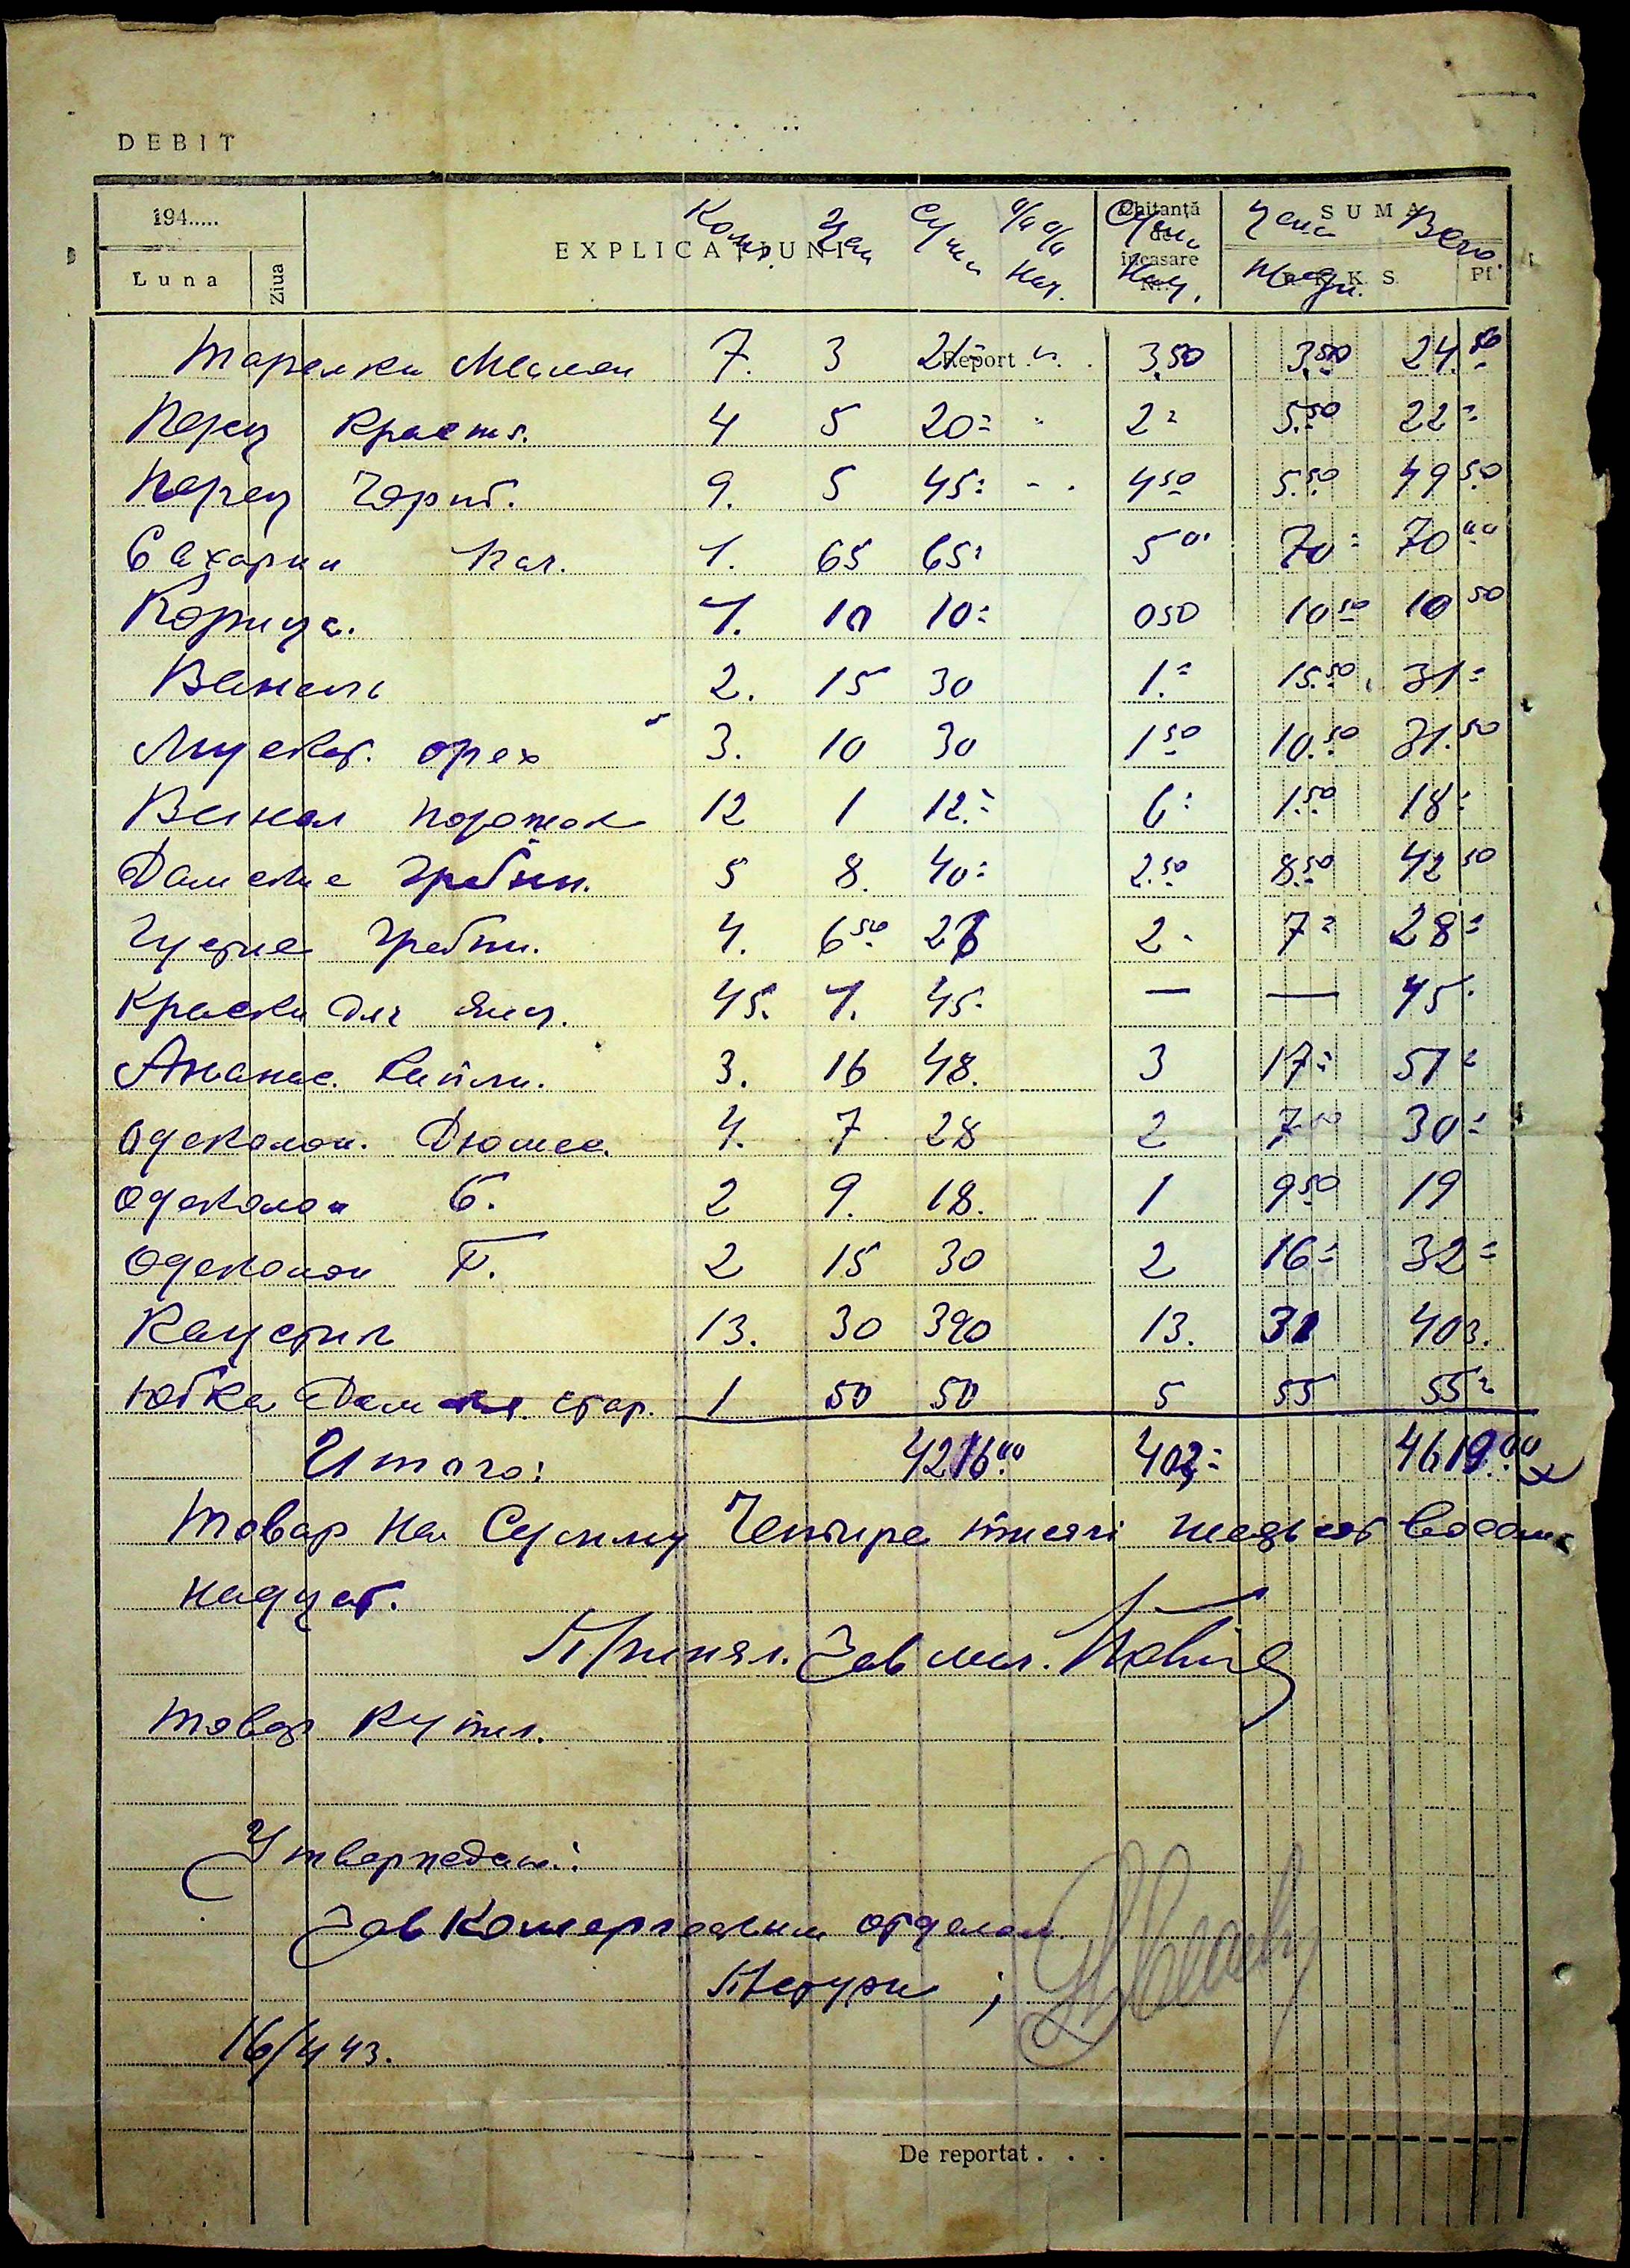 DEBIT
194.....
Luna
Ziua
EXPLICAȚIUNI
Колич. Цена Сумма %% Нац.
Chitanță de încasare Nr.
Сумма Нац.
SUMA
R. K. K. S.
Pf.
Цена Прод. Всего.
Report . . .
Тарелки Мелкая 7. 3 21 3,50 3,50 24.50
Перец Красн. 4 5 20= 2= 5.50 22=
Перец Чорный. 9. 5 45= 4 50 5.50 49 50
Сахарин пач. 1. 65 65= 5 00 70= 70 00
Корица. 1. 10 10= 0 50 10 50 10 50
Ваниль 2. 15 30 1.= 15.50 31=
Мускат. орех 3. 10 30 1 50 10.50 31.50
Ванил порошок 12 1 12.= 6= 1.50 18=
Дамские гребни. 5 8. 40= 2.50 8.50 42 50
Густые гребни. 4. 6 50 26 2= 7= 28=
Краски для яиц. 45. 1. 45= — — 45=
Ананас. Капли. 3. 16 48. 3 17= 51=
Одеколон. Дюшес. 4. 7 28 2 7 50 30=
Одеколон Б. 2 9. 18. 1 9 50 19
Одеколон Т. 2 15 30 2 16= 32=
Каустик 13. 30 390 13. 31 403.
Юбка Дамск. стар. 1 50 50 5 55 55=
Итого: 4216 00 403= 4619.00
Товар на Сумму Четыре тысячи шестьсот восем
надцат.
Принял. Зав маг.
Товар купил.
Утверждаю:
Зав Комерческим отделом
16/4 43.
De reportat . . .